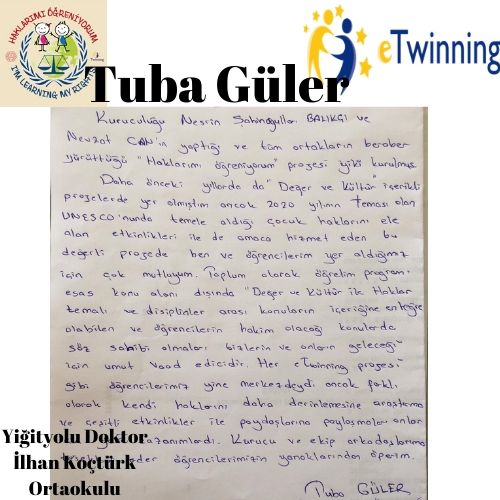 HAKLARIMI ÖĞRENİYORUM
I'M LEARNING MY RIGHTS
eTwinning
Tuba Güler
Kuruculuğu Nesrin Sabinoğulları BALIKÇI ve
Nevzat CAN'ın yaptığı ve tüm ortakların beraber
yürüttüğü "Haklarımı öğreniyorum" projesi iyiki kurulmuş
Daha önceki yıllarda da "Değer ve Kültür" içerikli
projelerde yer almıştım ancak 2020 yılının Teması olan
UNESCO'nunda temele aldığı çocuk haklarını ele
alan etkinlikleri ile de amaca hizmet eden bu
değerli projede ben ve öğrencilerim yer aldığımız
için çok mutluyum. Toplum olarak öğretim programı
esas konu alanı dışında "Değer ve Kültür ile Haklar
temalı ve disiplinler arası konuların içeriğine entegre
olabilen ve öğrencilerin hakim olacağı konularda
söz sahibi olmaları bizlerin ve onların geleceği
için umut vaad edicidir. Her eTwinning projesi
gibi öğrencilerimiz yine merkezdeydi ancak farklı
olarak kendi haklarını daha derinlemesine araştırma
ve çeşitli etkinlikler ile paydaşlarına paylaşmaları onları
kazanımlardı. Kurucu ve ekip arkadaşlarıma
eder öğrencilerimizin yanaklarından öperim.
Tuba GÜLER
Yiğityolu Doktor
İlhan Koçtürk
Ortaokulu